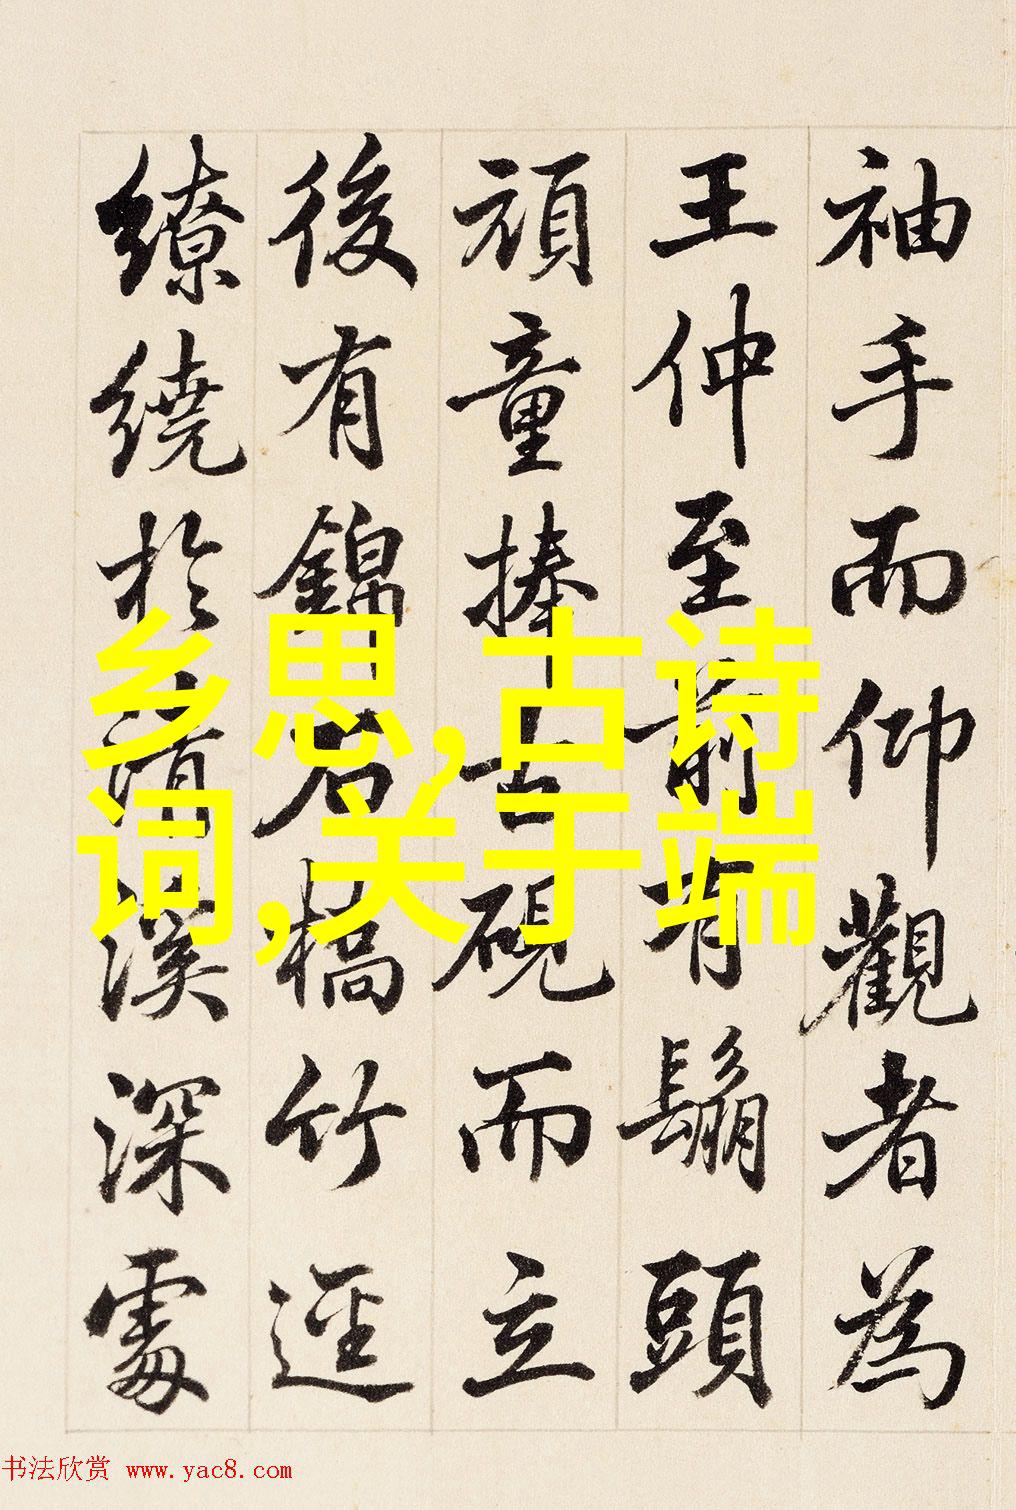 袖手而仰觀者為
王仲至前有鬅頭
頑童捧古硯而立
後有錦石橋竹逕
繚繞於清溪深處
乡思,古诗
词,关于端
书法欣赏 www.yac8.com